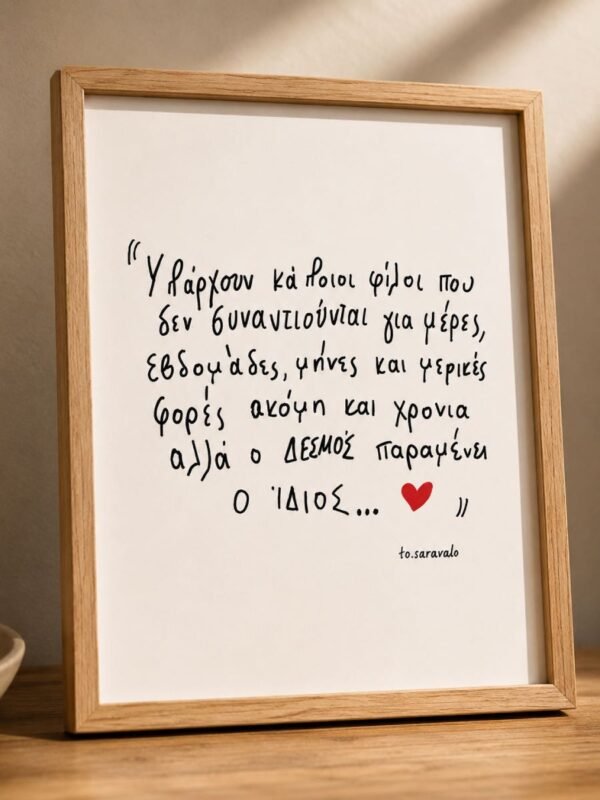 “Υπάρχουν κάποιοι φίλοι που
δεν συναντιούνται για μέρες,
εβδομάδες, μήνες και μερικές
φορές ακόμη και χρονια
αλλά ο ΔΕΣΜΟΣ παραμένει
Ο ΊΔΙΟΣ... ❤ ”
to.saravalo